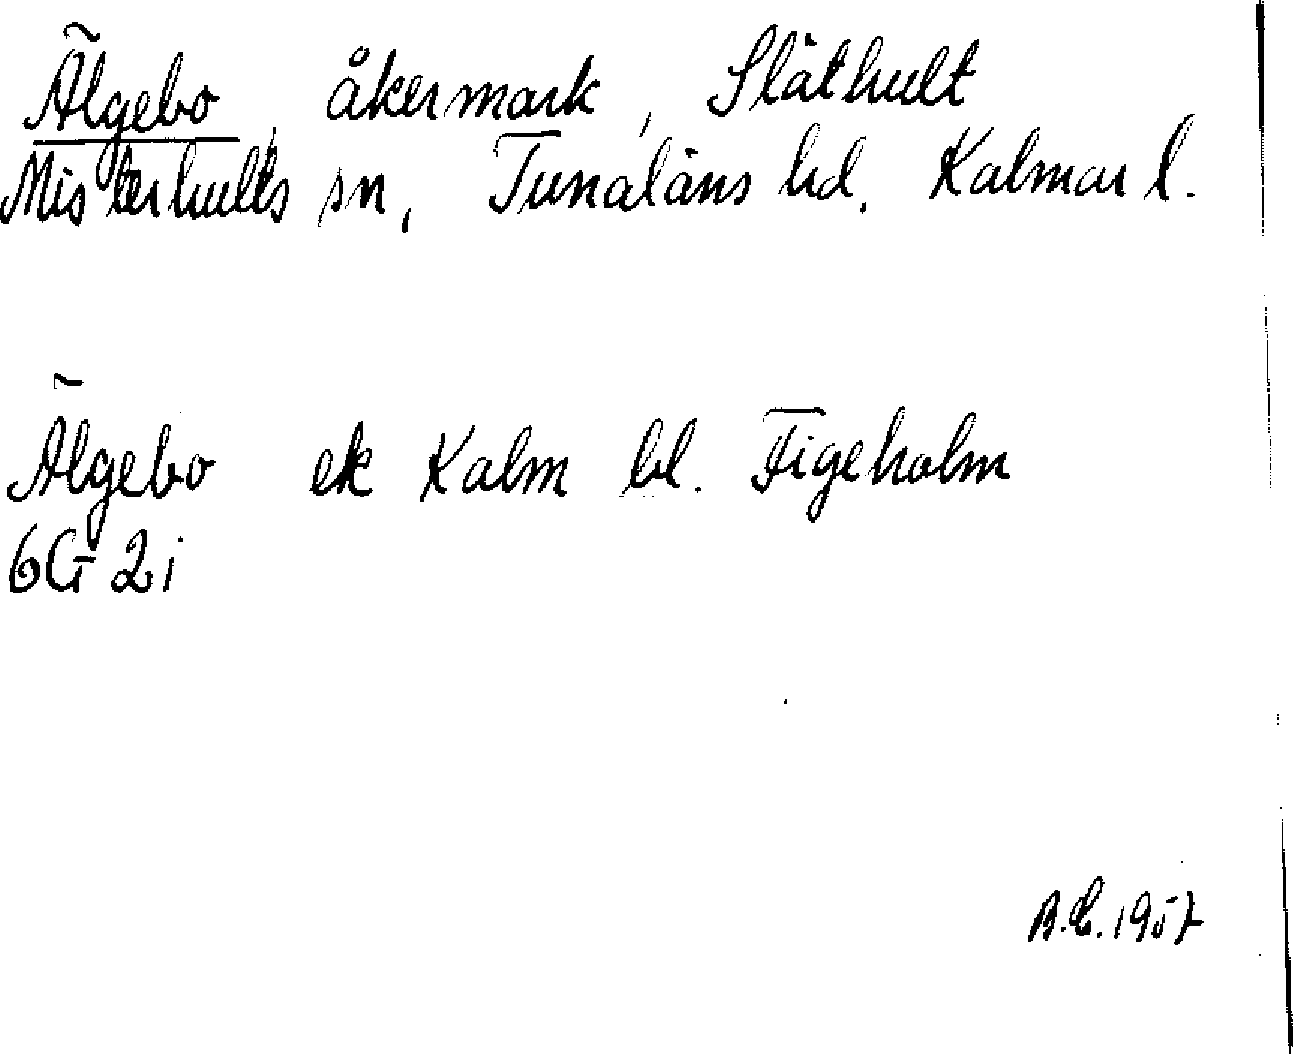 Älgebo, åkermark, Släthult
Misterhults sn, Tunaläns hd, Kalmar l.
Älgebo ek Kalm bl. Figeholm
6G 2i
1957